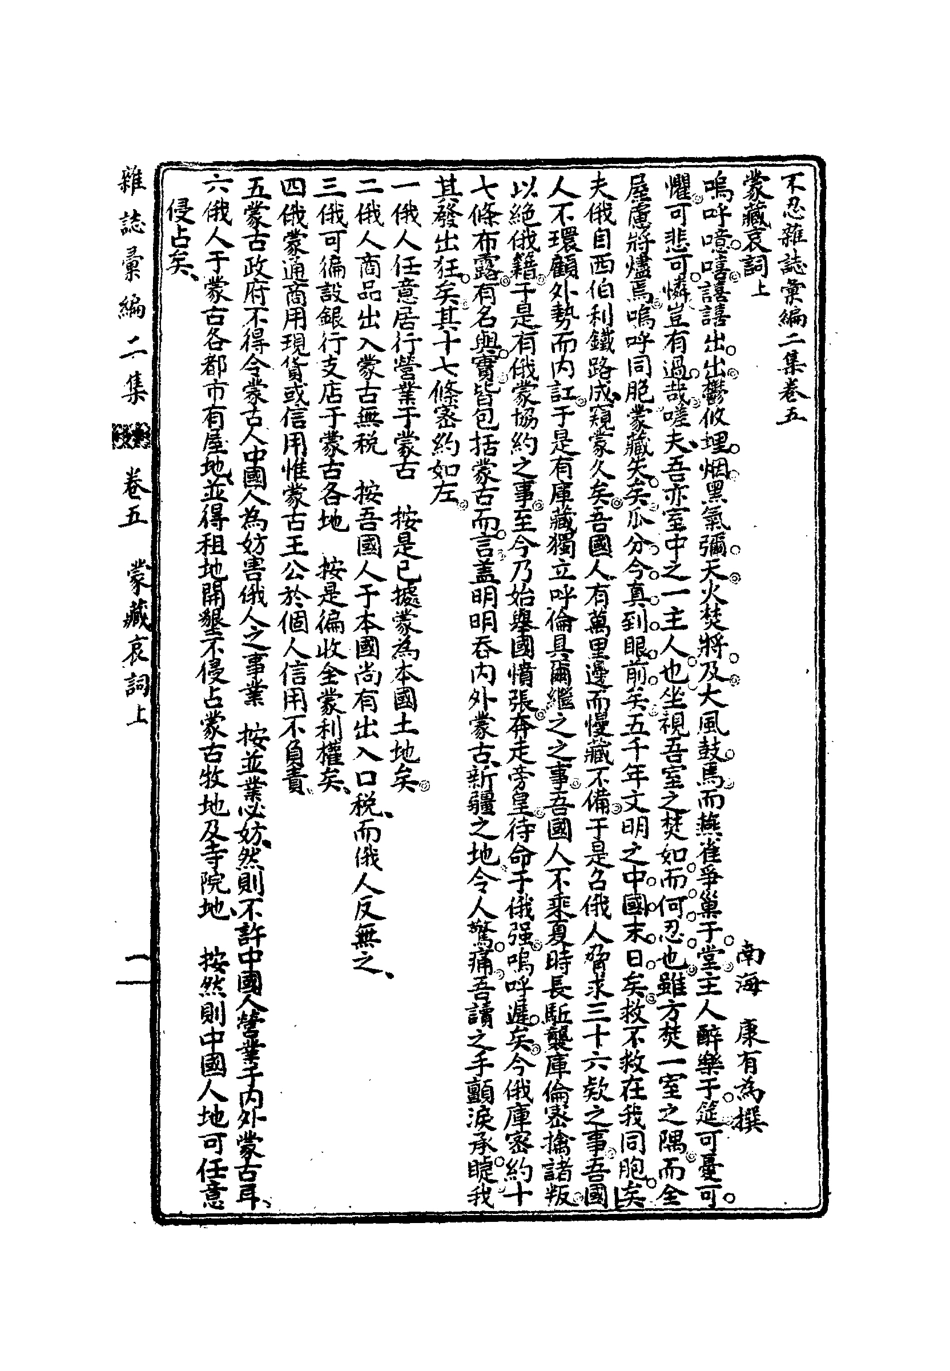 不忍雜誌彙編二集卷五
蒙藏哀詞上
南海　康有為撰
嗚呼噫嘻譆譆出出鬱攸堙烟黑氣彌天火焚將及大風鼓焉而燕雀爭巢于堂主人醉樂于筵可憂可
懼可悲可憐豈有過哉嗟夫吾亦室中之一主人也坐視吾室之焚如而何忍也雖方焚一室之隅而全
屋慮將燼焉嗚呼同胞蒙藏失矣瓜分今真到眼前矣五千年文明之中國末日矣救不救在我同胞矣
夫俄自西伯利鐵路成窺蒙久矣吾國人有萬里邊而慢藏不備于是召俄人脅求三十六欵之事吾國
人不環顧外勢而內訌于是有庫藏獨立呼倫具爾繼之之事吾國人不乘夏時長駈襲庫倫密擒諸叛
以絕俄籍于是有俄蒙協約之事至今乃始舉國憤張奔走旁皇待命于俄强嗚呼遲矣今俄庫密約十
七條布露有名與實皆包括蒙古而言蓋明明吞內外蒙古新疆之地令人驚痛吾讀之手顫淚承睫我
其發出狂矣其十七條密約如左
一俄人任意居行營業于蒙古　按是已據蒙為本國土地矣
二俄人商品出入蒙古無税　按吾國人于本國尚有出入口税而俄人反無之
三俄可徧設銀行支店于蒙古各地　按是徧收全蒙利權矣
四俄蒙通商用現貨或信用惟蒙古王公於個人信用不負責
五蒙古政府不得令蒙古人中國人為妨害俄人之事業　按並業必妨然則不許中國人營業于內外蒙古耳
六俄人于蒙古各都市有屋地並得租地開墾不侵占蒙古牧地及寺院地　按然則中國人地可任意
侵占矣
雜誌彙編二集　卷五　蒙藏哀詞上　一